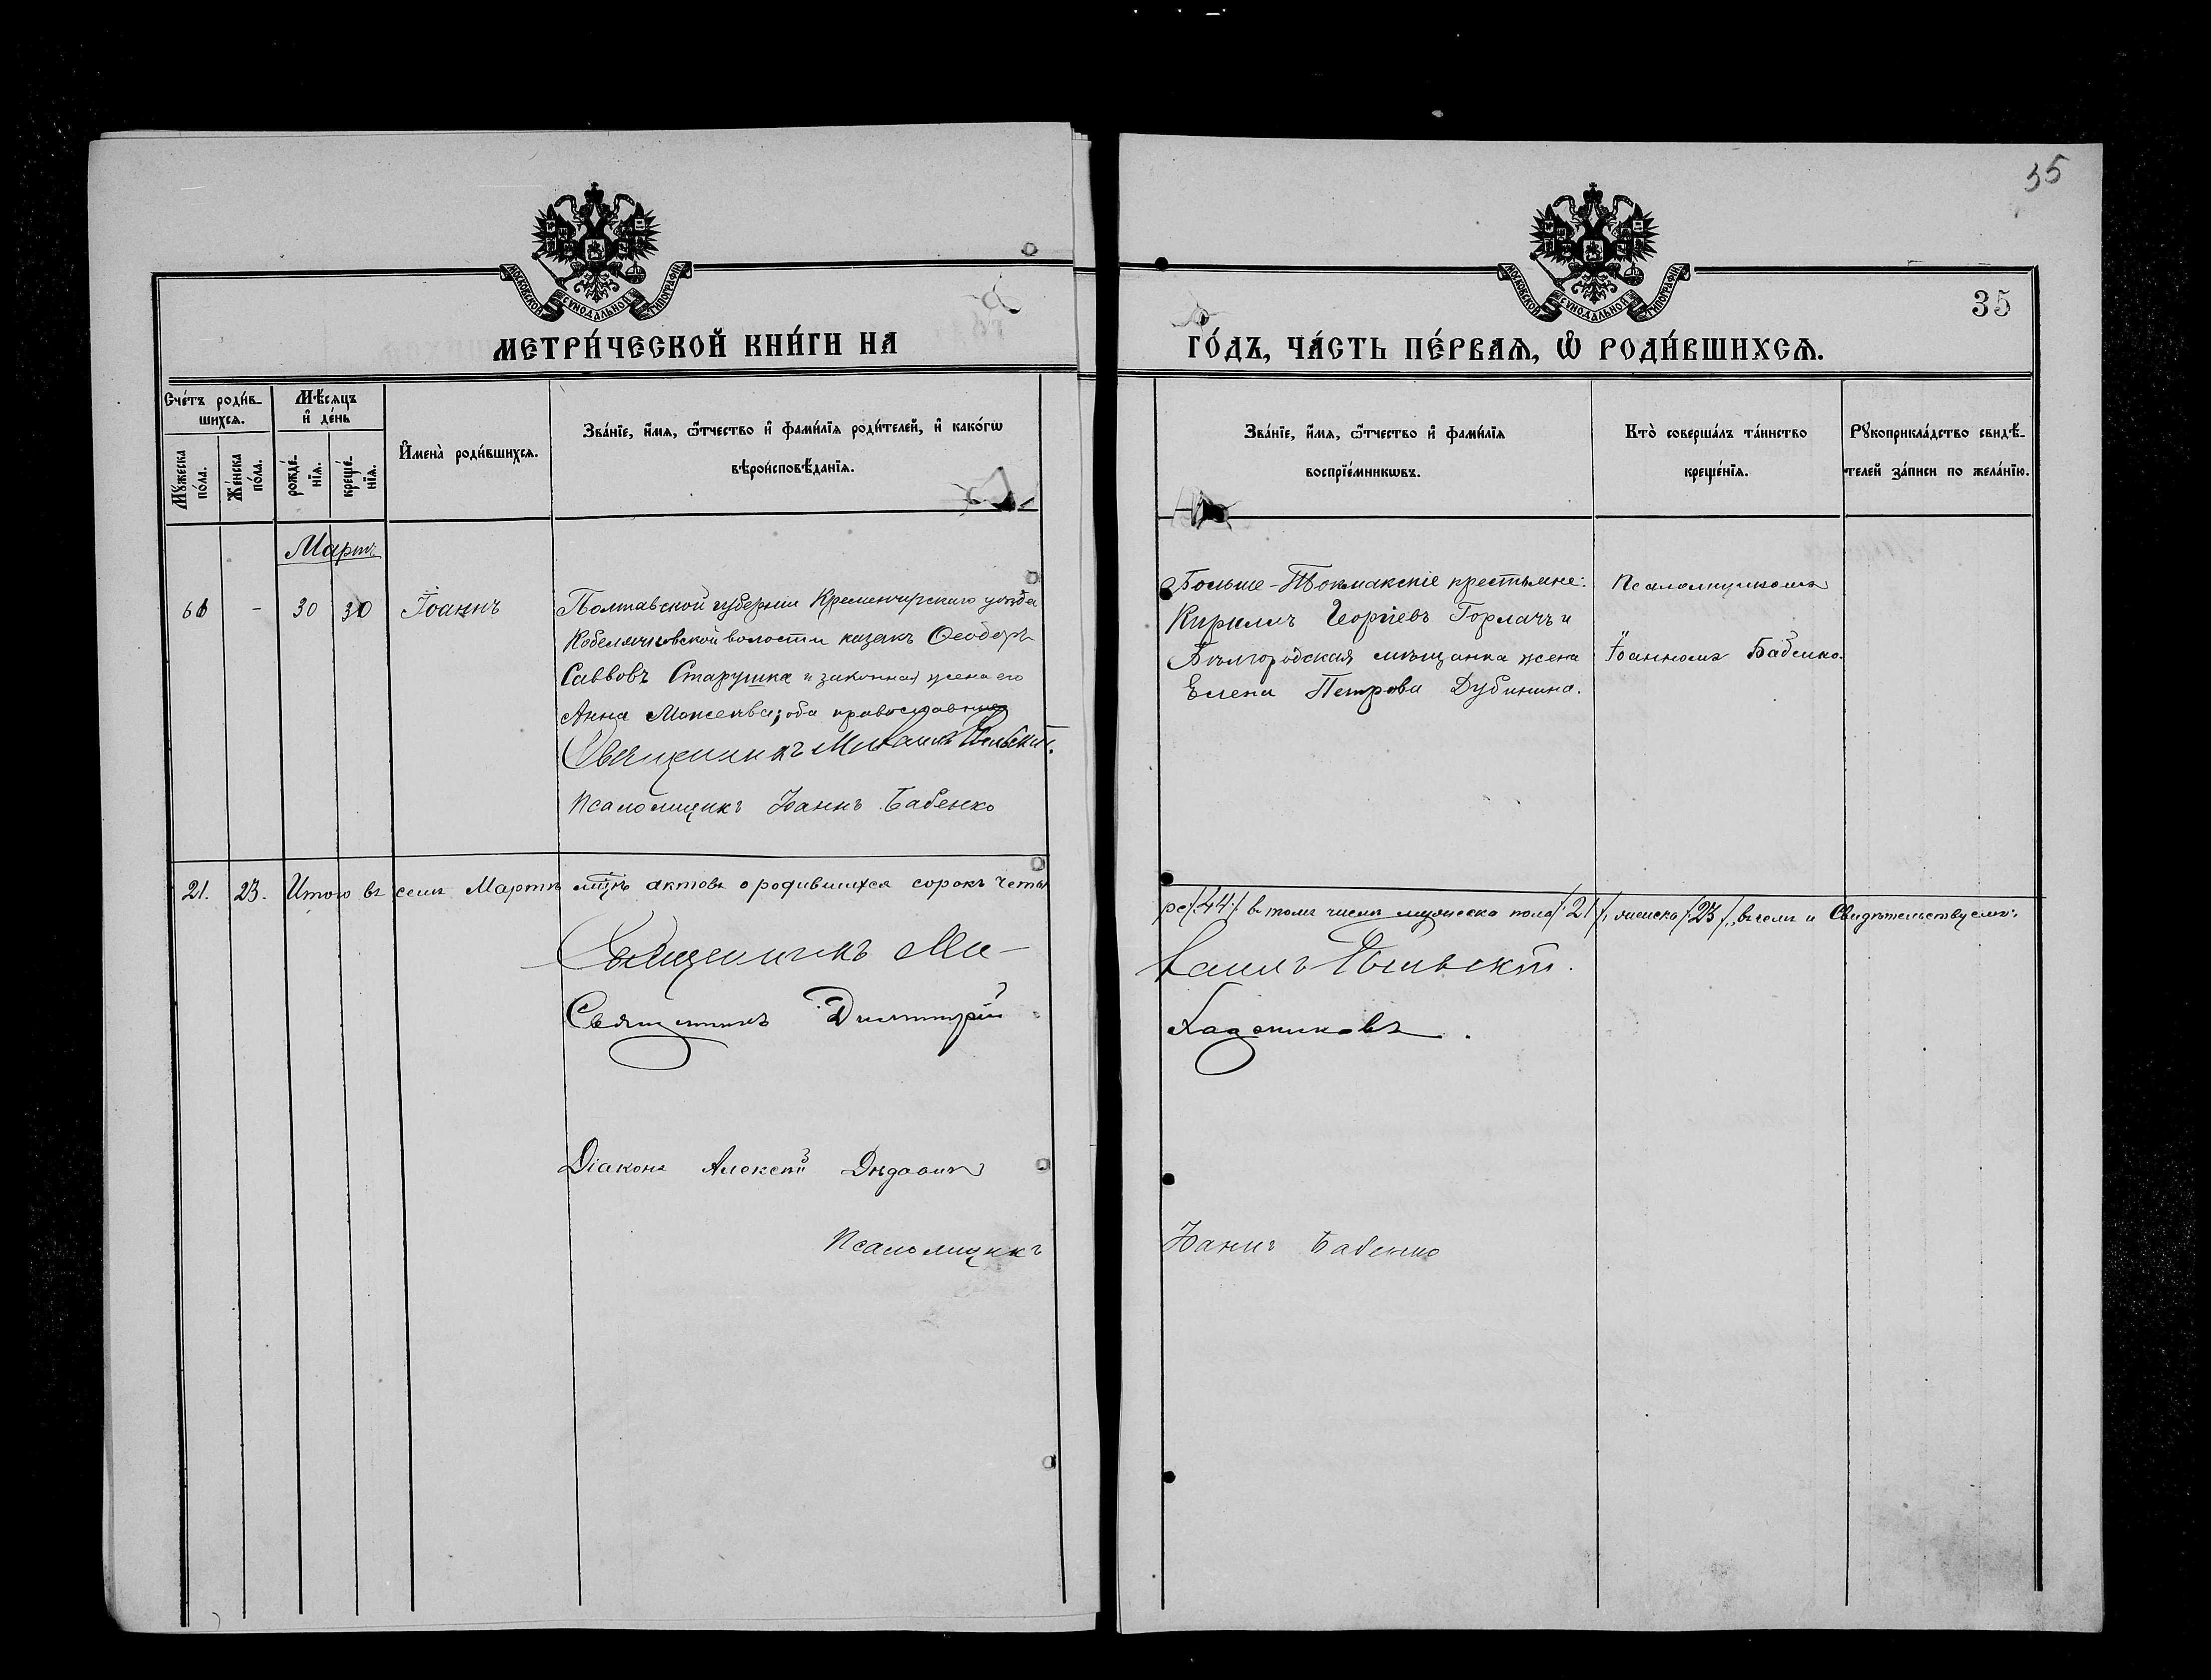 35
МОСКОВСКОЙ СѴНОДАЛЬНОЙ ТИПОГРАФІИ
МОСКОВСКОЙ СѴНОДАЛЬНОЙ ТИПОГРАФІИ
35
МЕТРИ́ЧЕСКОЙ КНИ́ГИ НА
ГО́ДЪ, ЧА́СТЬ ПЕ́РВАѦ, Ѡ҆ РОДИ́ВШИХСѦ.
Сче́тъ роди́в-
шихсѧ.
Мѣ́сѧцъ
и҆ де́нь
Мꙋ́жеска
по́ла.
Же́нска
по́ла.
рожде́-
нїѧ.
креще́-
нїѧ.
И҆мена̀ роди́вшихсѧ.
Зва́нїе, и҆́мѧ, ѻ҆́тчество и҆ фами́лїѧ роди́телей, и҆ како́гѡ
вѣроисповѣ́данїѧ.
Зва́нїе, и҆́мѧ, ѻ҆́тчество и҆ фами́лїѧ
воспрїе́мникѡвъ.
Кто̀ соверша́лъ та́инство
креще́нїѧ.
Рꙋкоприкла́дство свидѣ́-
телей за́писи по жела́нїю.
Мартъ
61 - 30 30 Іоаннъ
Полтавской губерніи Кременчугскаго уѣзда
Кобелячковской волости казакъ Ѳеодоръ
Саввовъ Старушка и законная жена его
Анна Моисеева; оба православные
Священникъ Михаилъ
Псаломщикъ Іоаннъ Бабенко
Больше-Токмакскіе крестьяне:
Кириллъ Георгіевъ Горлачъ и
Бѣлгородская мѣщанка жена
Елена Петрова Дубинина.
Псаломщикомъ
Іоанномъ Бабенко.
21. 23. Итого въ семъ Мартѣ мцѣ актовъ о родившихся сорокъ четы
ре /44/ въ томъ числѣ мужеска пола /21/, женска /23/, въ чемъ и Свидѣтельствуемъ:
Священникъ Ми-
хаилъ
Священникъ Димитрій
Діаконъ Алексѣй
Псаломщикъ
Іоаннъ Бабенко